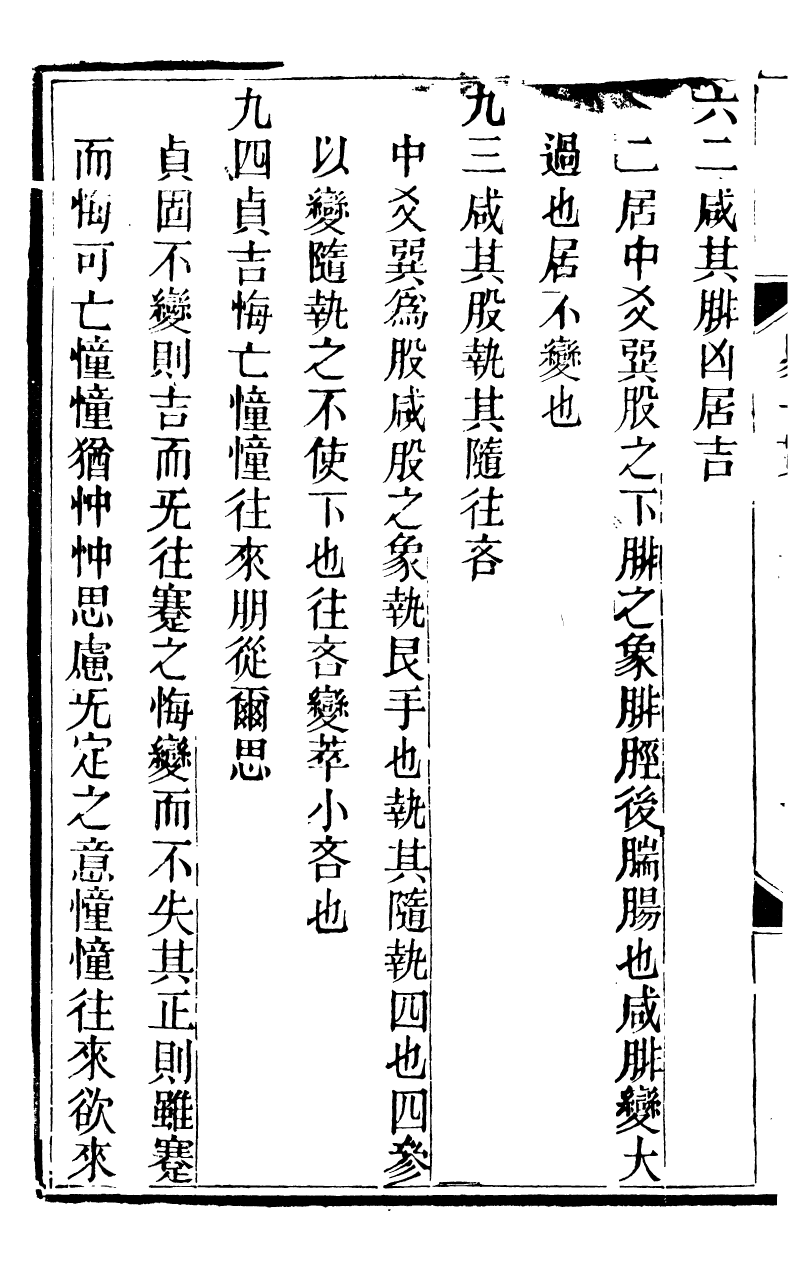 六二咸其腓凶居吉
二居中爻巽股之下腓之象腓脛後腨腸也咸腓變大
過也居不變也
九三咸其股執其隨往吝
中爻巽爲股咸股之象執艮手也執其隨執四也四參
以變隨執之不使下也往吝變萃小吝也
九四貞吉悔亡憧憧往來朋從爾思
貞固不變則吉而无往蹇之悔變而不失其正則雖蹇
而悔可亡憧憧猶忡忡思慮无定之意憧憧往來欲來